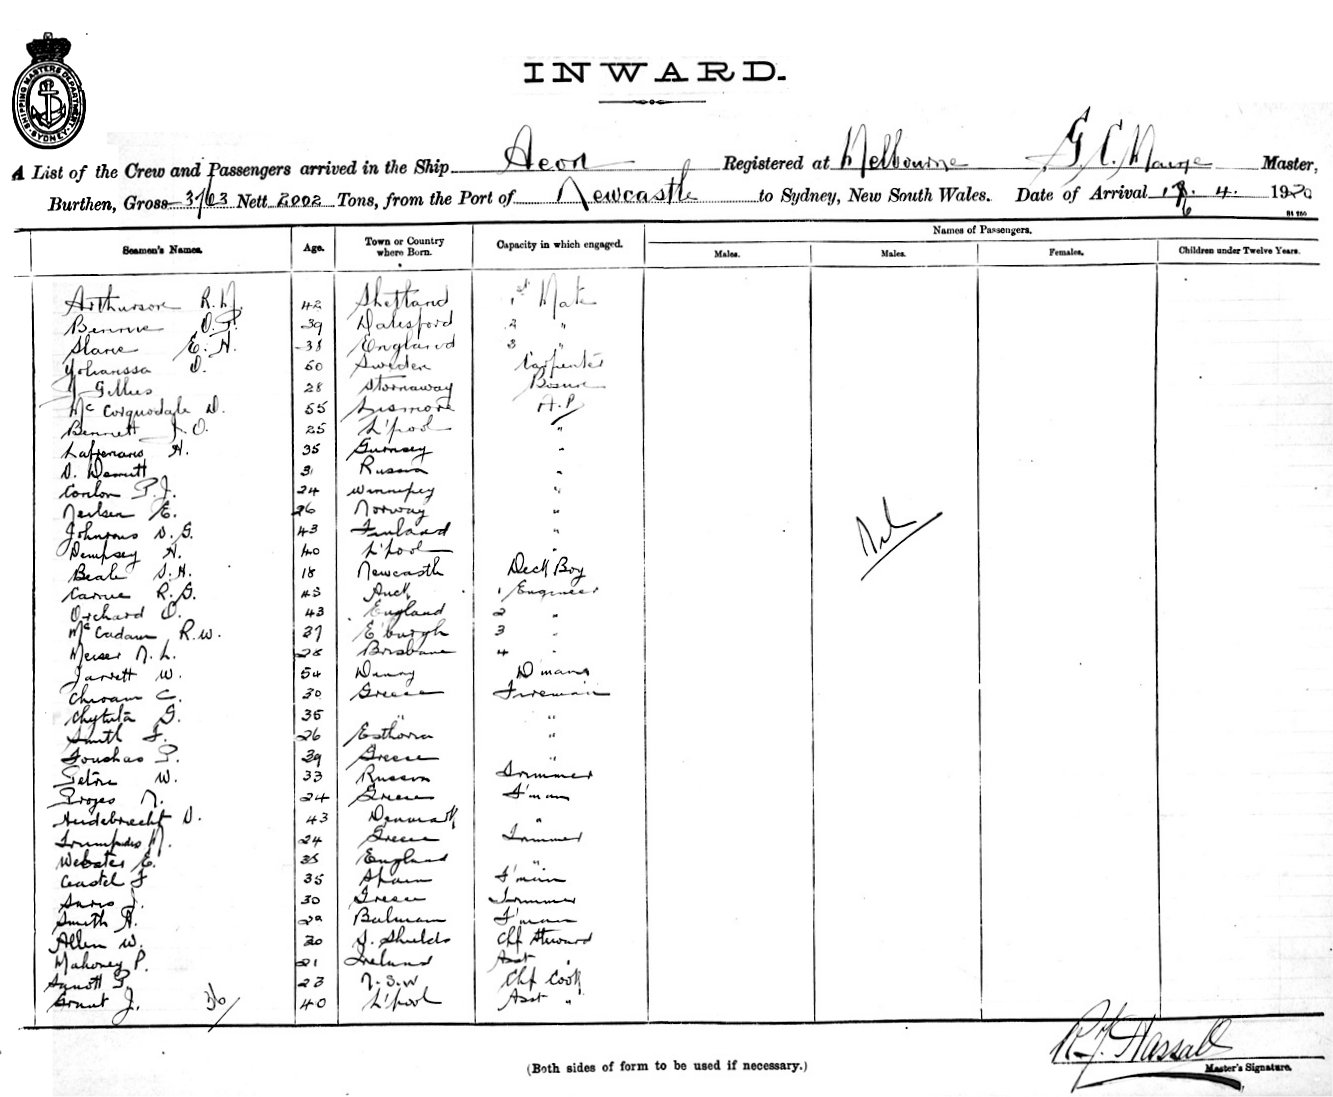 SHIPPING MASTERS DEPARTMENT SYDNEY
INWARD.
A List of the Crew and Passengers arrived in the Ship Aeon Registered at Melbourne G. C. Master,
Burthen, Gross 3763 Nett 2002 Tons, from the Port of Newcastle to Sydney, New South Wales. Date of Arrival 4. 1920
Seamen's Names. Age. Town or Country where Born. Capacity in which engaged. Names of Passengers.
Males. Males. Females. Children under Twelve Years.
Arthurson R. M. 42 Shetland 1st Mate
Bennie D. P. 39 Dalesford 2 "
Slane E. H. 38 England 3 "
Johanssa O. 60 Sweden Carpenter
J Gillies 28 Stornaway Bosun
Mc Corquodale D. 55 Lismore A.B
Bennett J. O. 25 L'pool "
H. 35 Gurnsey "
D. 31 Russia "
Conlon P. J. 24 Winnipeg "
Neilsen E. 26 Norway "
Johnsons D. G. 43 Finland "
Dempsey H. 40 L'pool "
Beale S. H. 18 Newcastle Deck Boy
Carne R. G. 43 Auck 1 Engineer
Orchard O. 43 England 2 "
McCadam R. W. 27 E'burgh 3 "
N. L. 28 Brisbane 4 "
Jarrett W. 54 D'man
C. 30 Greece Fireman
G. 35 " "
Smith F. 26 Esthonia "
P. 39 Greece "
W. 33 Russia Trimmer
N. 24 Greece F'man
Heidebrecht D. 43 Denmark "
M. 24 Greece Trimmer
Webster E. 35 England "
F 35 Spain F'man
J. 30 Greece Trimmer
Smith H. 29 F'man
Allen W. 30 S. Shields Chf Steward
Mahoney P. 21 Ireland Asst "
P. 23 N. S. W Chf Cook
Grant J. 40 L'pool Asst "
36/
Nil
(Both sides of form to be used if necessary.)
Hassall
Master's Signature.